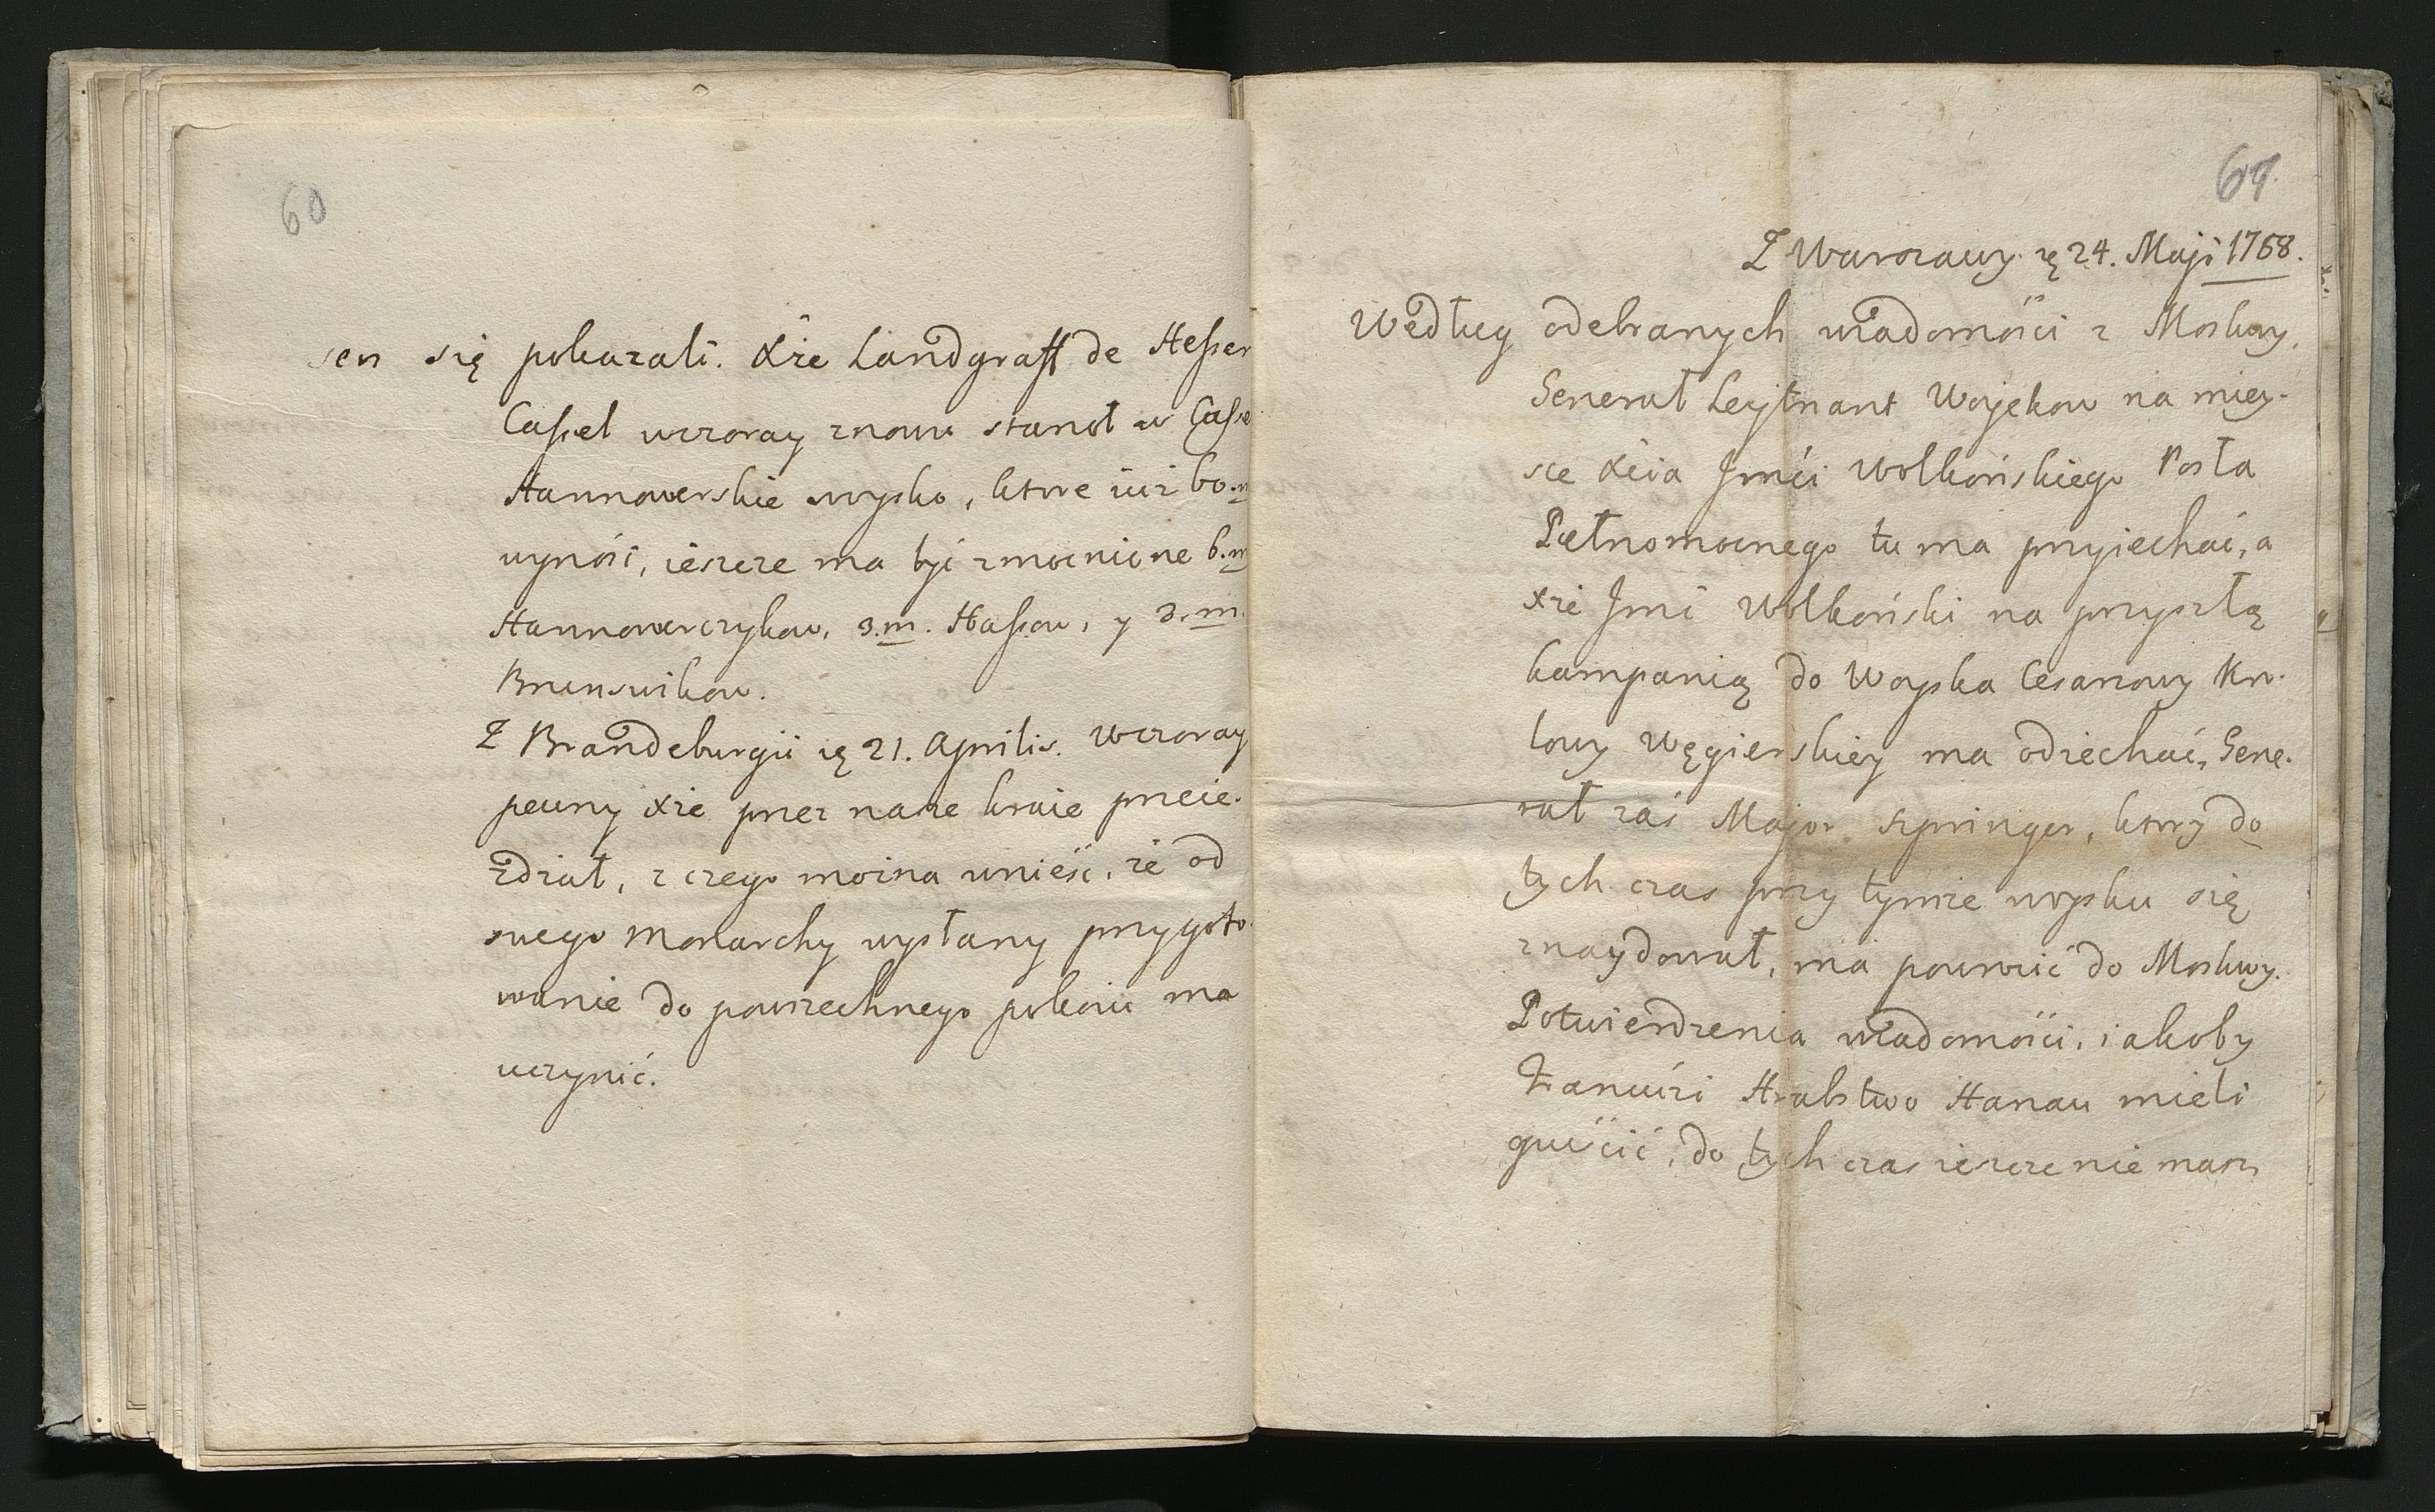 60
sen się pokazali. Xże Landgraff de Hessen
Cassel wczoray znowu stanoł w Casse
Hannowerskie woysko, ktore iuż 60.m
wynósi, ieszcze ma być zmocnione 6.m
Hannowerczykow, 3.m. Hassow, y 3.m.
Brunswikow.
Z Brandeburgii ię 21. Aprilis. Wczoray
pewny Xże przez nasze kraie przeie.
zdzał, z czego można wnieść, że od
swego Monarchy wysłany przygoto.
wanie do powszechnego pokoiu ma
uczynić.
61.
Z Warszawy ię 24. Maji 1758.
Według odebranych wiadomości z Moskwy,
Generał Leytnant Wojekow na miey.
sce Xcia Jmći Wolkońskiego Posła
Pełnomocnego tu ma przyiechać, a
Xże Jmć Wolkoński na przyszłą
kampanią do Woyska Cesarzowy Kro.
lowy Węgierskiey ma odiechać, Gene.
rał zaś Major Szpringer, ktory do
tych czas przy tymże woysku się
znaydował, ma powrocić do Moskwy.
Potwierdzenia wiadomości, iakoby
Francuzi Hrabstwo Hanau mieli
opuścić, do tych czas ieszcze nie masz,